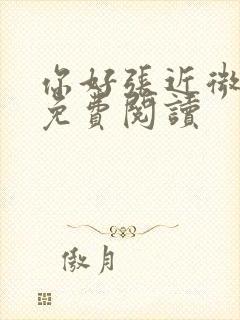 你好張近微
免費閱讀
傲月